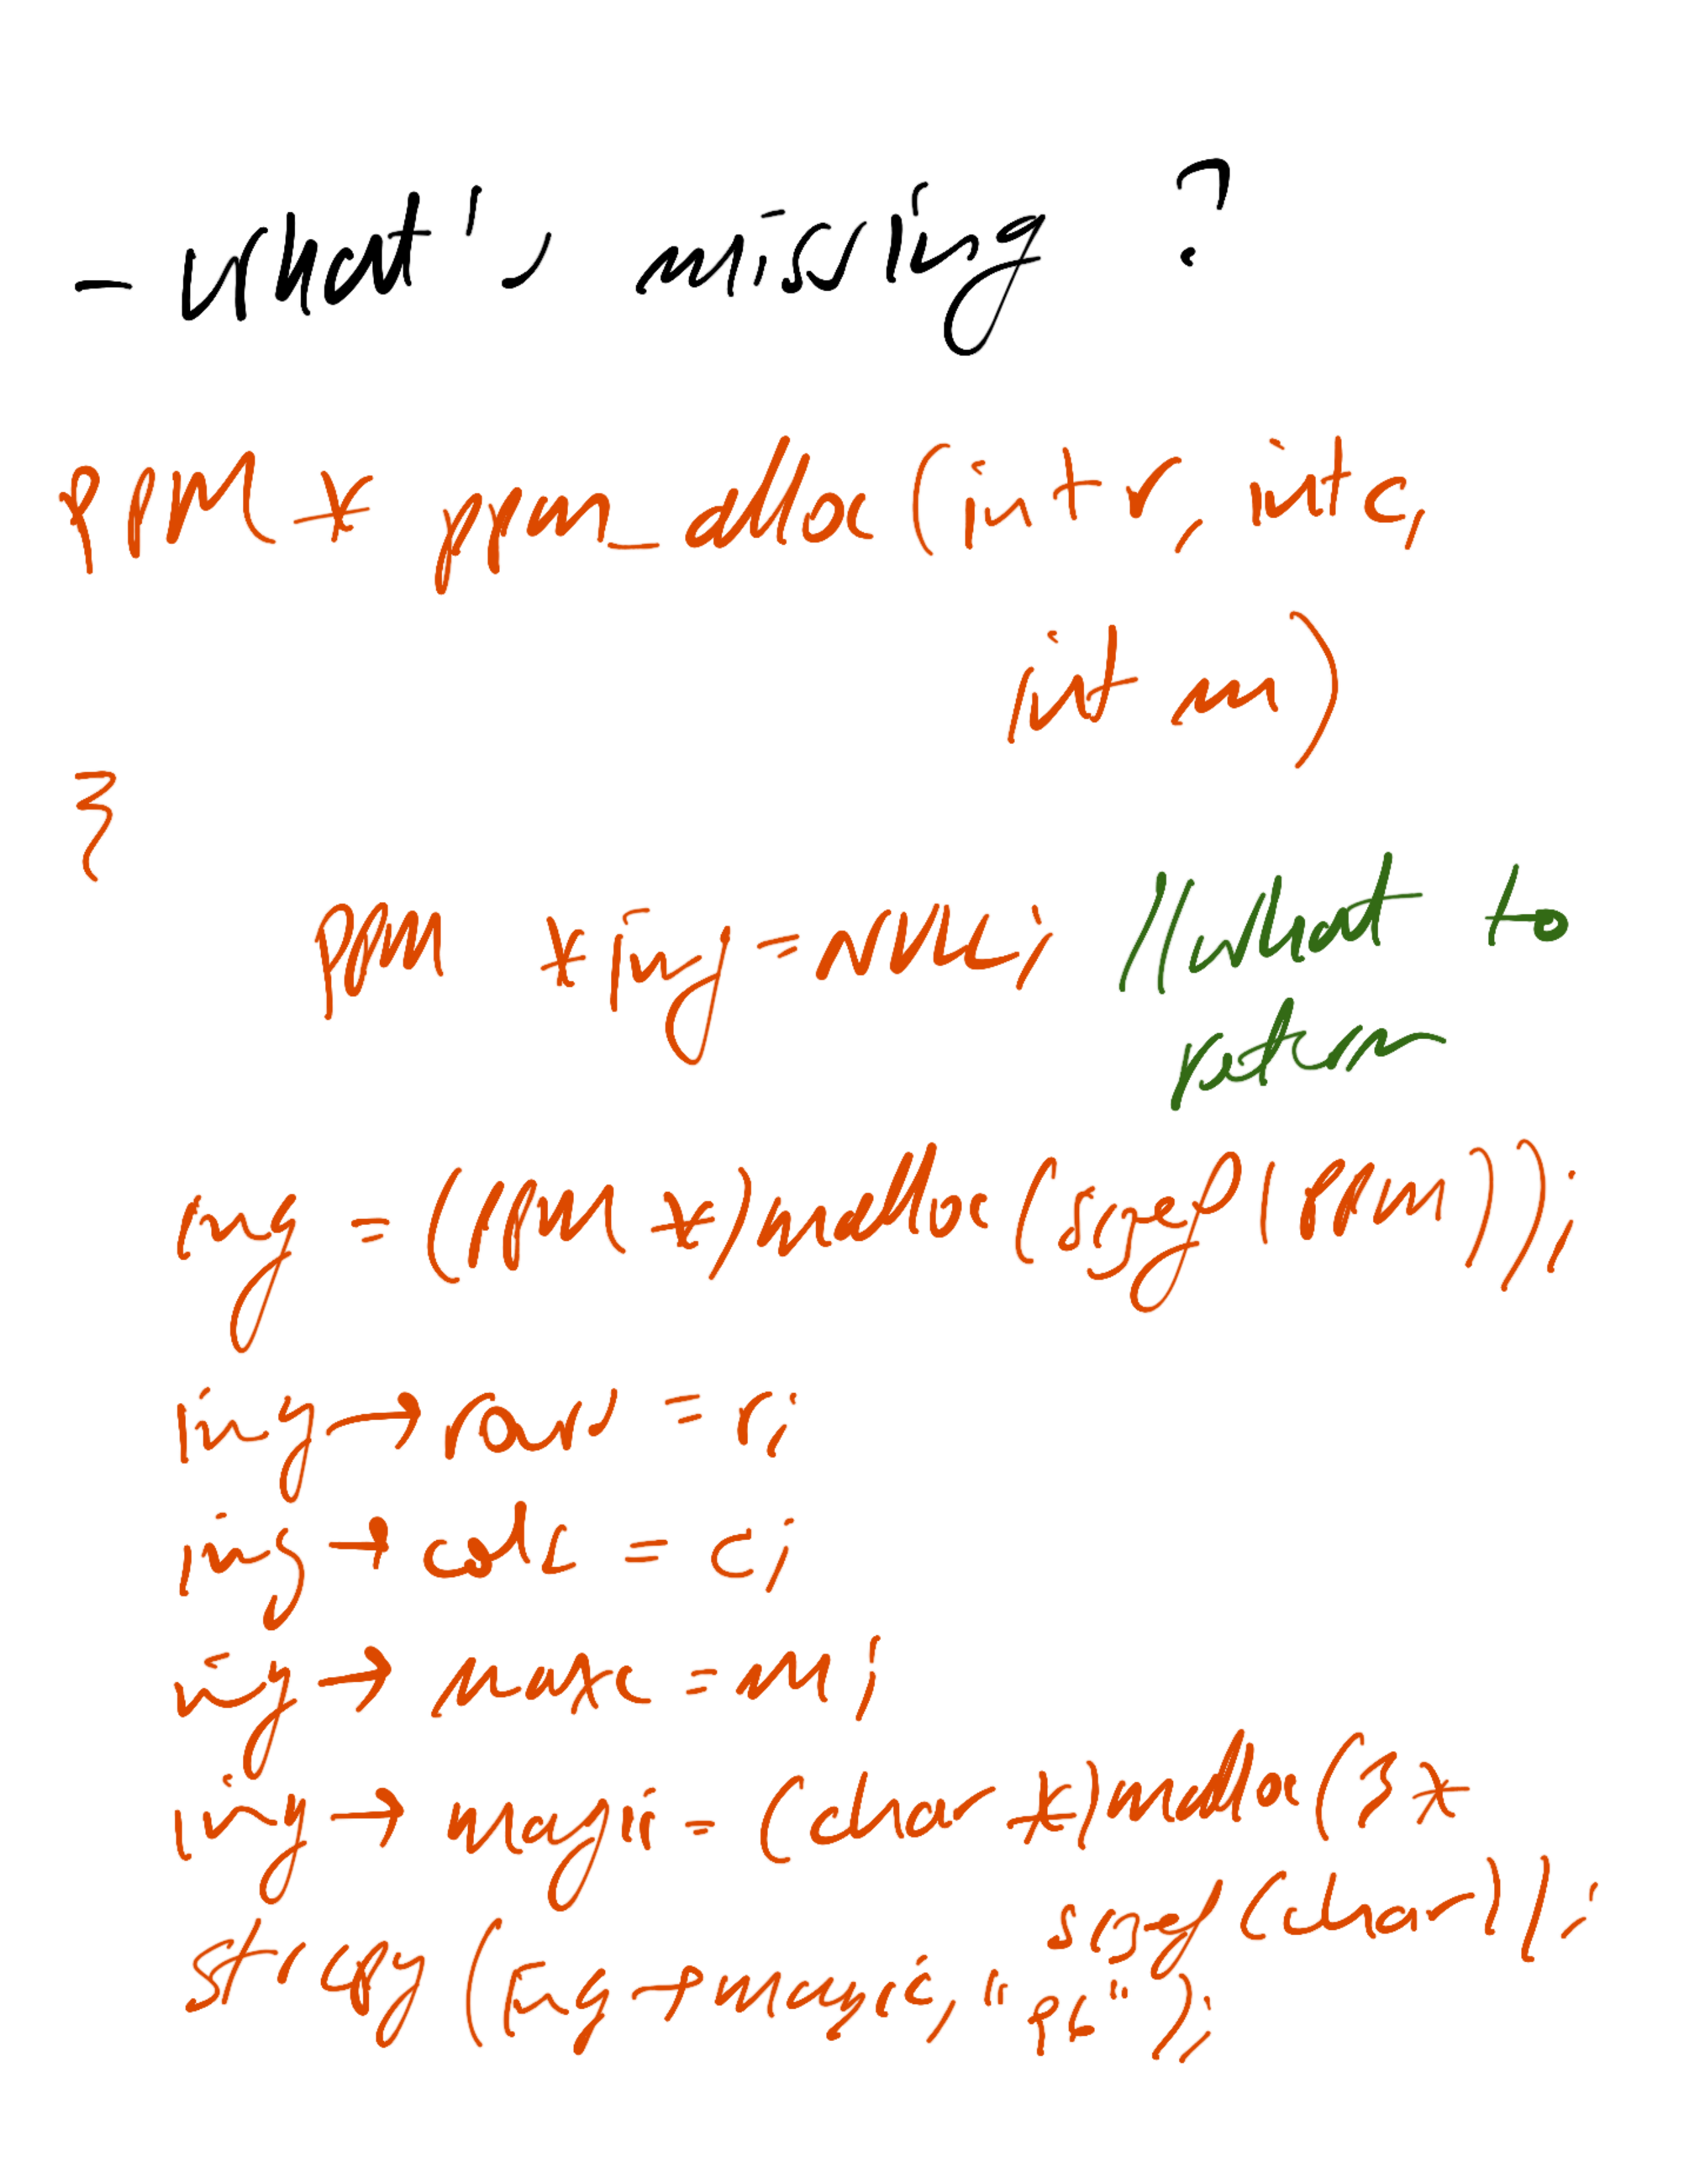 - What's missing ?
PPM * ppm_alloc (int r, int c,
int m)
{
PPM *img = NULL; //what to
return
img = (PPM *)malloc(sizeof(PPM));
img → row = r;
img → colc = c;
img → maxc = m;
img → magic = (char *)malloc(3 *
sizeof(char));
strcpy (img → magic, "P6");